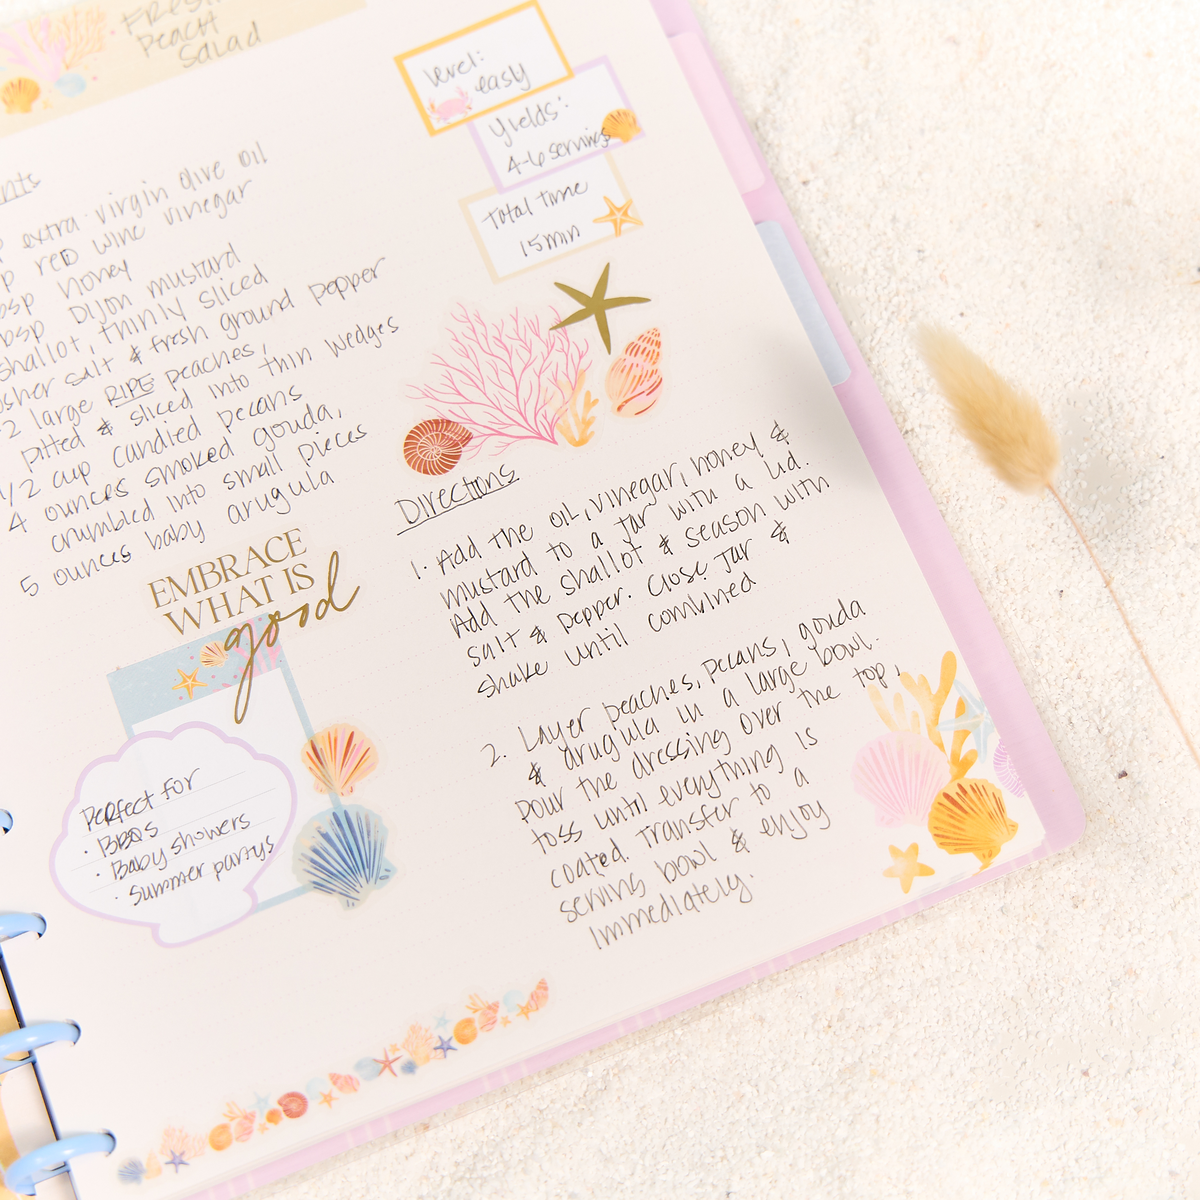 Fresh
Peach
Salad
level:
easy
Yields:
4-6 servings
Total Time
15 min
extra virgin olive oil
red wine vinegar
honey
Dijon mustard
shallot, thinly sliced
salt & fresh ground pepper
2 large RIPE peaches,
pitted & sliced into thin wedges
1/2 cup candied pecans
4 ounces smoked gouda,
crumbled into small pieces
5 ounces baby arugula
EMBRACE
WHAT IS
good
Perfect for
· BBQs
· Baby showers
· Summer partys
Directions
1. Add the oil, vinegar, honey &
mustard to a jar with a lid.
Add the shallot & season with
salt & pepper. Close jar &
shake until combined
2. Layer peaches, pecans, gouda
& arugula in a large bowl.
Pour the dressing over the top,
toss until everything is
coated. Transfer to a
serving bowl & enjoy
immediately.